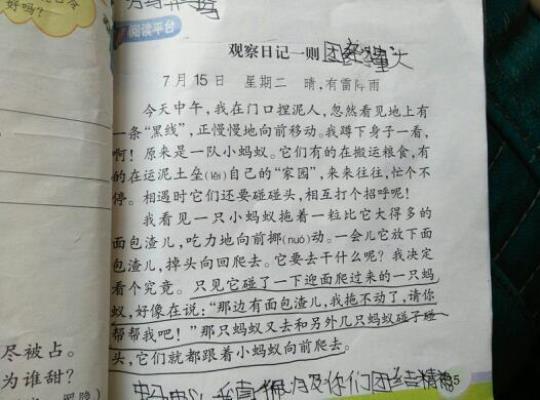 好吗?
阅读平台
观察日记一则 团结力量大
7月15日 星期二 晴,有雷阵雨
今天中午,我在门口捏泥人,忽然看见地上有
一条“黑线”,正慢慢地向前移动。我蹲下身子一看,
啊!原来是一队小蚂蚁。它们有的在搬运粮食,有
的在运泥土垒(lěi)自己的“家园”,来来往往,忙个不
停。相遇时它们还要碰碰头,相互打个招呼呢!
我看见一只小蚂蚁拖着一粒比它大得多的
面包渣儿,吃力地向前挪(nuó)动。一会儿它放下面
包渣儿,掉头向回爬去。它要去干什么呢?我决定
看个究竟。只见它碰了一下迎面爬过来的一只蚂
蚁,好像在说:“那边有面包渣儿,我拖不动了,请你
帮帮我吧!”那只蚂蚁又去和另外几只蚂蚁碰了碰
头,它们就都跟着小蚂蚁向前爬去。
尽被占。
为谁甜?
罗隐)
蚂蚁 我真佩服你们团结精神
5